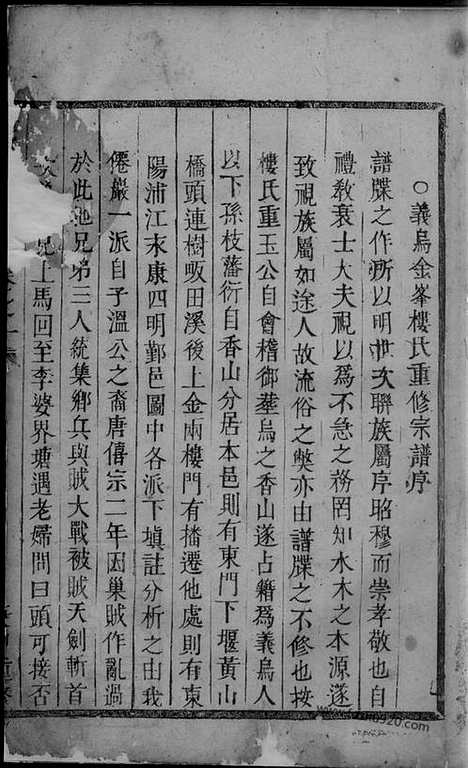 ○義烏金峯樓氏重修宗譜序
譜牒之作所以明世次聯族屬序昭穆而崇孝敬也自
禮敎衰士大夫視以爲不急之務罔知水木之本源遂
致視族屬如途人故流俗之獘亦由譜牒之不修也按
樓氏重玉公自會稽御塟烏之香山遂占籍爲義烏人
以下孫枝蕃衍自香山分居本邑則有東門下堰黃山
橋頭連樹畈田溪後上金兩樓門有播遷他處則有東
陽浦江末康四明鄞邑圖中各派下塡註分析之由我
僊巖一派自子溫公之裔唐僖宗二年因巢賊作亂過
於此地兄弟三人統集鄉兵與賊大戰被賊天劍斬首
上馬回至李婆界塘遇老婦問曰頭可接否